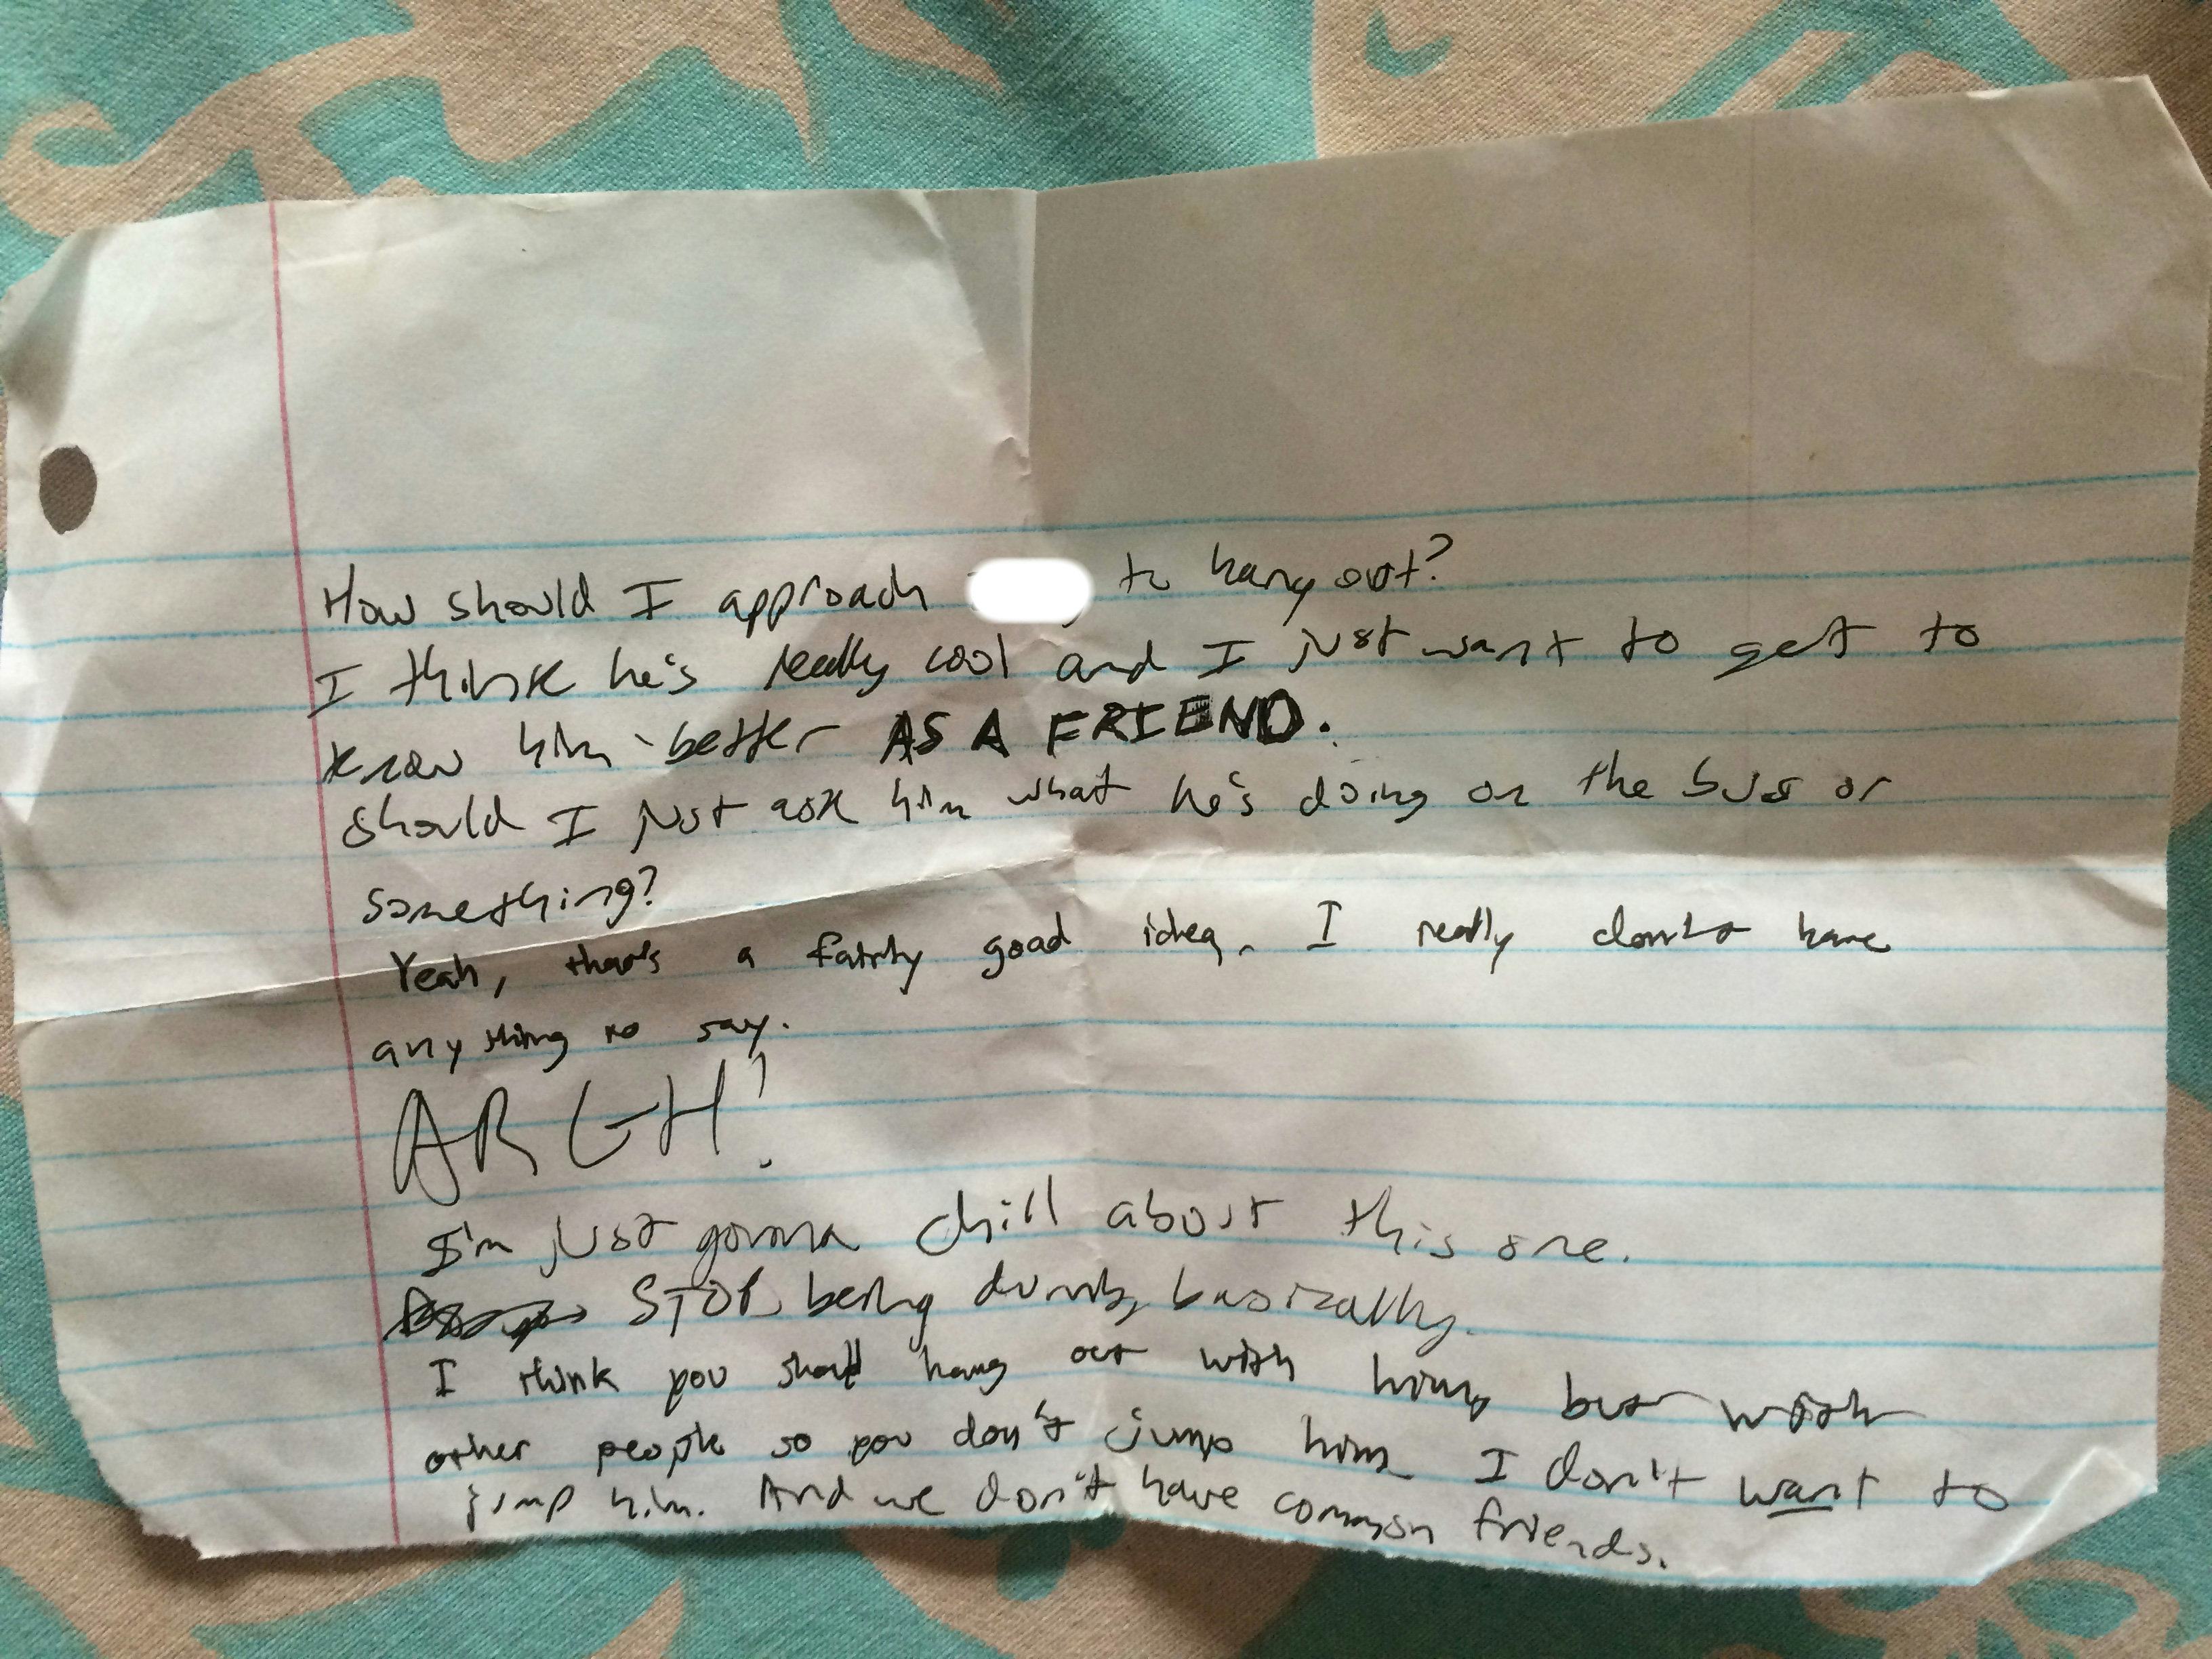 How should I approach to hang out?
I think he's really cool and I just want to get to
know him better AS A FRIEND.
should I just ask him what he's doing on the bus or
something?
Yeah, that's a fairly good idea. I really don't have
anything to say.
ARGH!
I'm just gonna chill about this one.
STOP being dumb, basically.
I think you should hang out with him, but with
other people so you don't jump him I don't want to
jump him. And we don't have common friends.